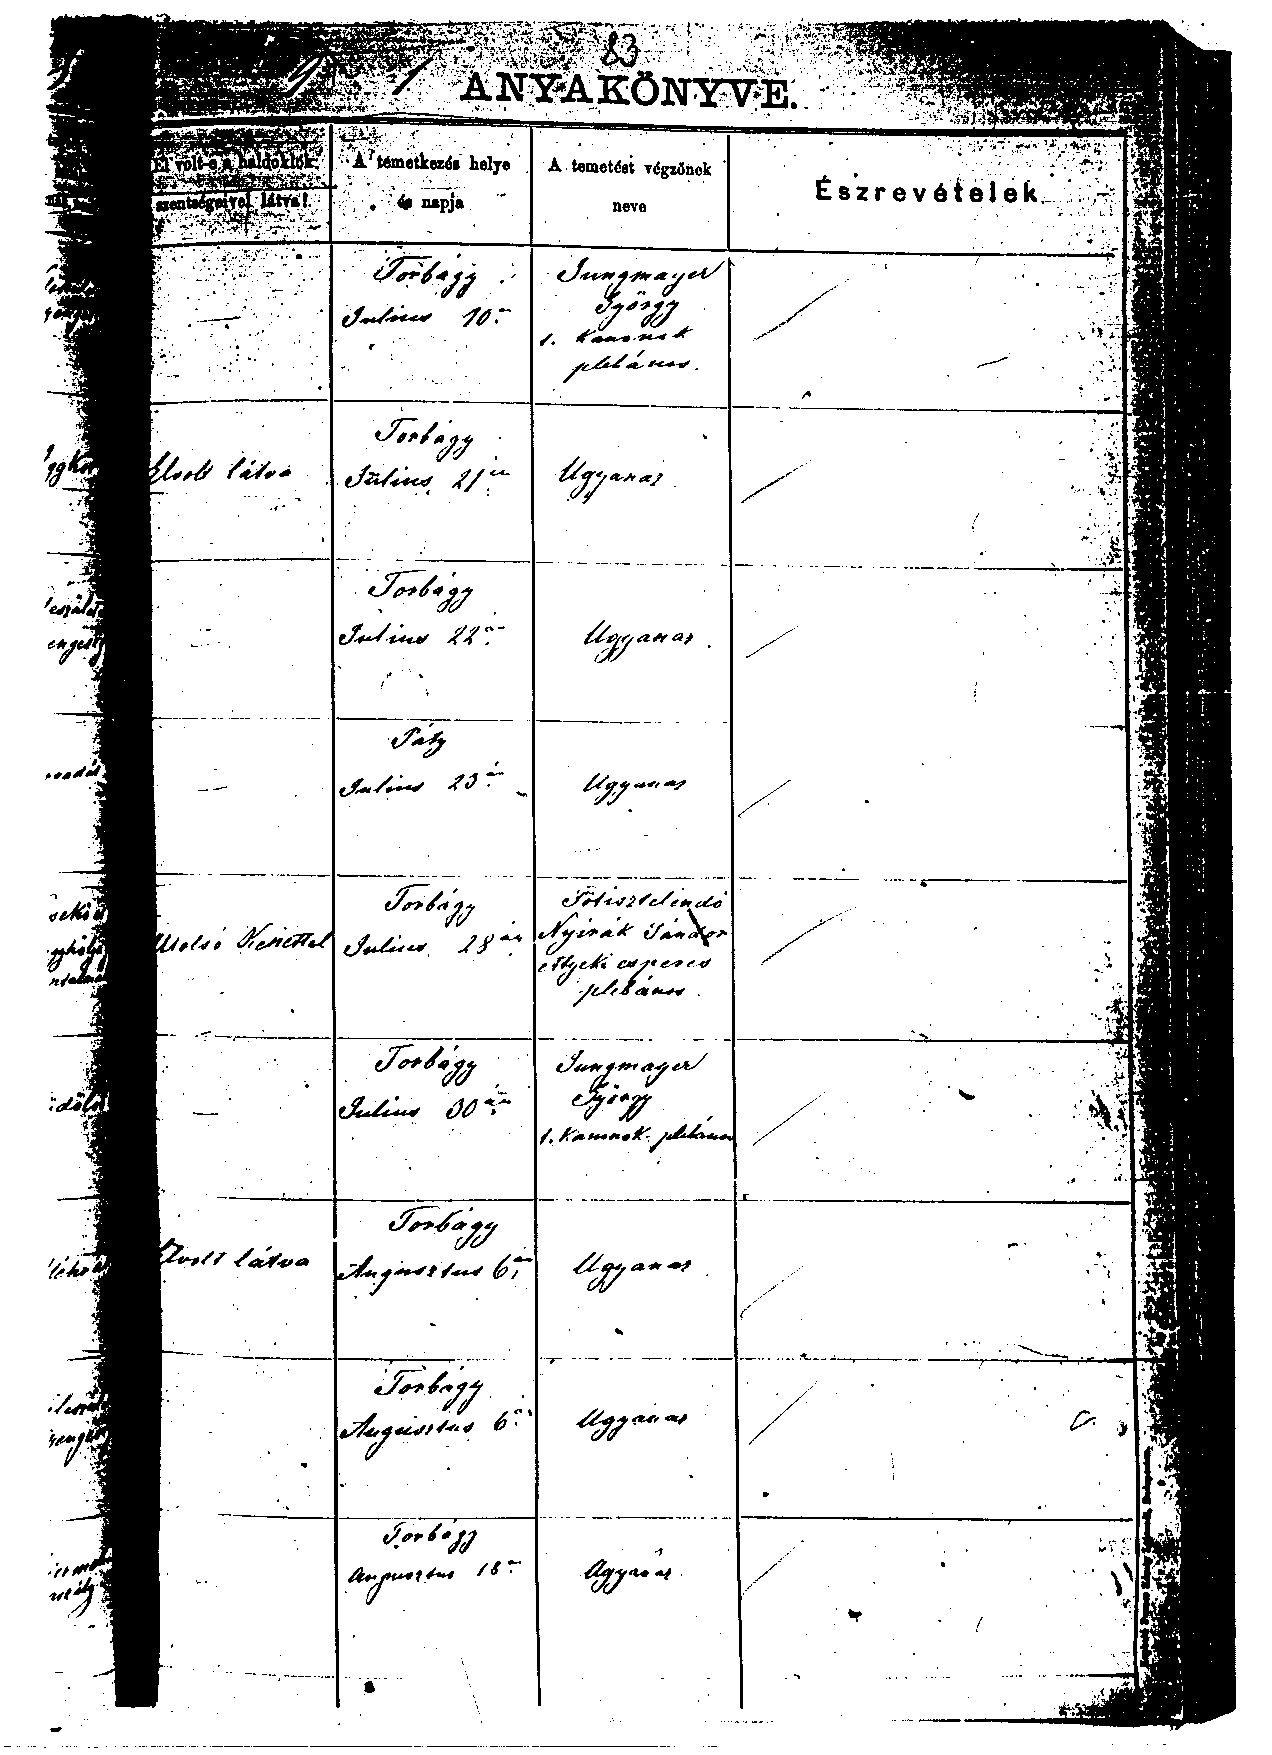 83
ANYAKÖNYVE.
El volt-e a haldoklók
szentségeivel látva?
A temetkezés helye
és napja
A temetést végzőnek
neve
Észrevételek
Torbágy
Julius 10én
Jungmayer
György
1. Kanonok
plebános.
Elvolt látva
Torbágy
Julius 21én
Ugyanaz
Torbágy
Julius 22én
Ugyanaz.
Páty
Julius 23án
Ugyanaz
Utolsó Kenettel
Torbágy
Julius 28án
Főtisztelendő
Nyirák Sándor
etyeki esperes
plebános.
Torbágy
Julius 30án
Jungmayer
György
1. Kanonok plebános
Elvolt látva
Torbágy
Augusztus 6án
Ugyanaz
Torbágy
Augusztus 6án
Ugyanaz
Torbágy
Augusztus 18án
Ugyanaz